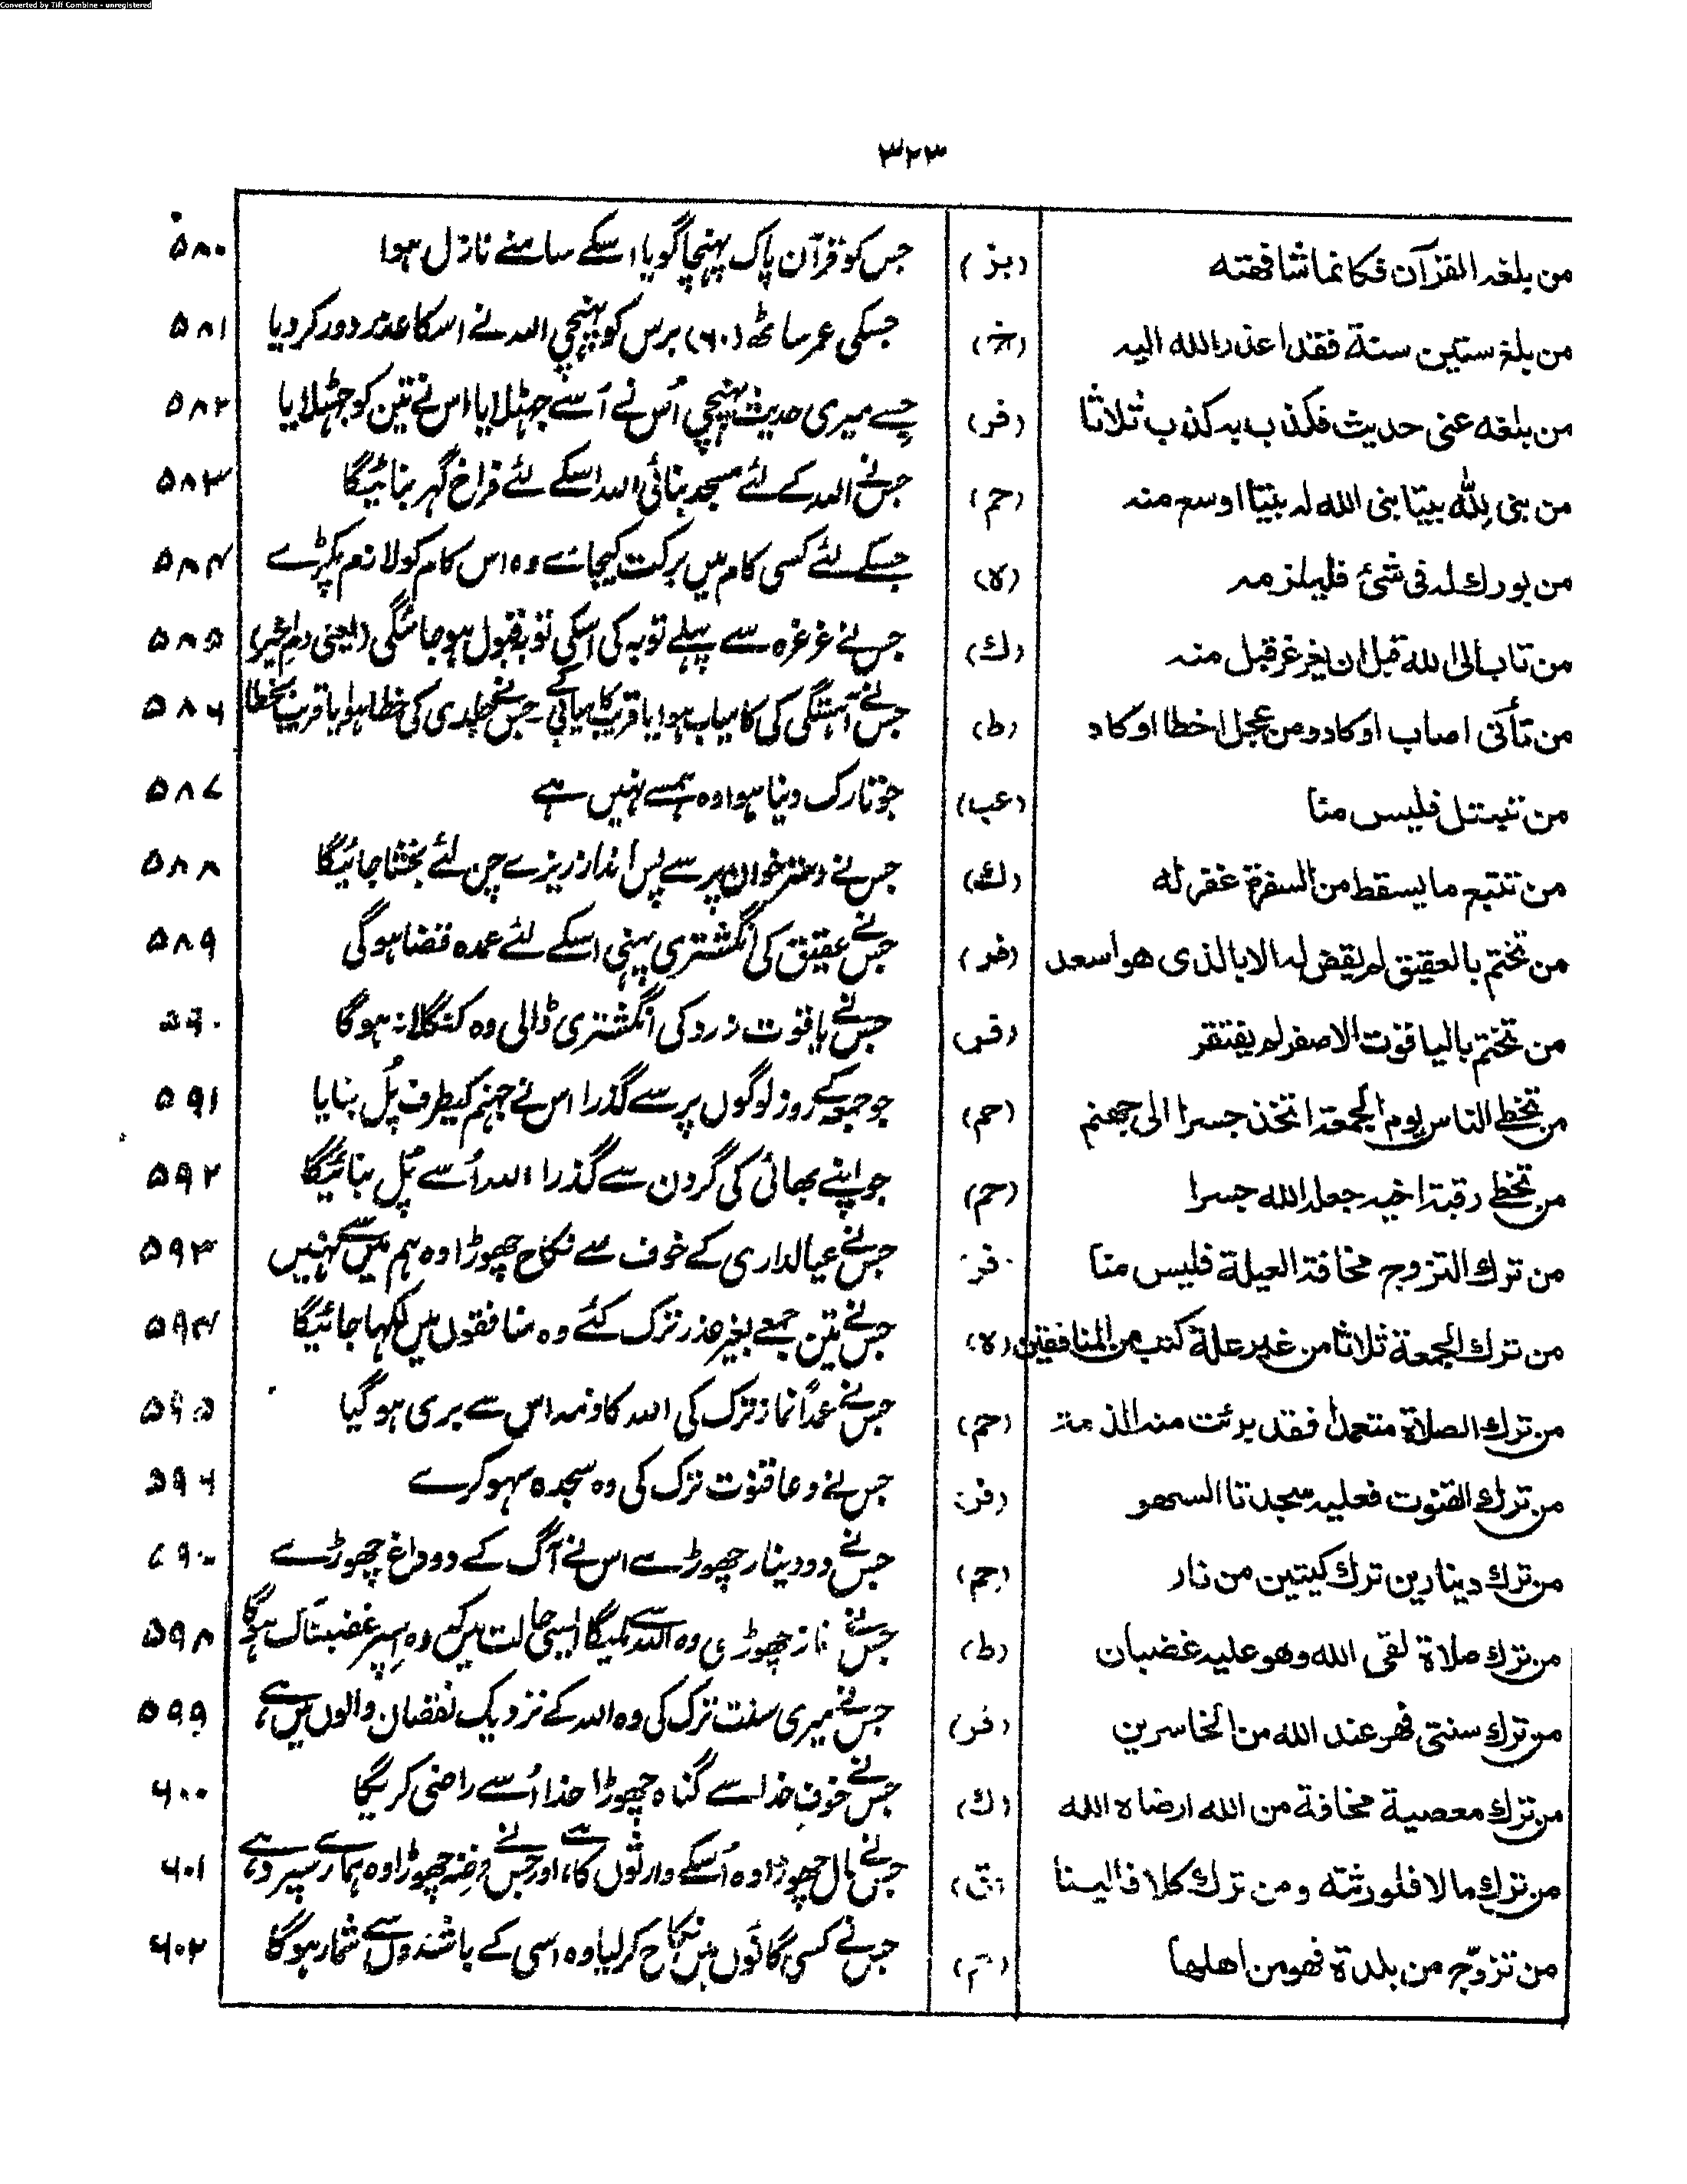 Converted by Tiff Combine - unregistered
۳۲۳
من بلغه القرآن فکانما شافهته (بز) جس کو قرآن پاک پہنچا گویا اسکے سامنے نازل ہوا ۵۸۰
من بلغ ستین سنة فقد اعذر الله الیه (خ) جسکی عمر ساٹھ (۶۰) برس کو پہنچی اللہ نے اسکا عذر دور کر دیا ۵۸۱
من بلغه عنی حدیث فکذب به کذب ثلاثا (فر) جسے میری حدیث پہنچی اُس نے اُسے جہٹلایا اس نے تین کو جہٹلایا ۵۸۲
من بنی لله بیتا بنی الله له بیتا اوسع منه (حم) جس نے اللہ کے لئے مسجد بنائی اللہ اسکے لئے فراخ گہر بنائیگا ۵۸۳
من بورك له فی شئ فلیلزمه (ہ) جسکے لئے کسی کام میں برکت کیجائے وہ اس کام کو لازم پکڑے ۵۸۴
من تاب الی الله قبل ان یغرغر قبل منه (ك) جس نے غرغرہ سے پہلے توبہ کی اسکی توبہ قبول ہو جائیگی (یعنی دم اخیر) ۵۸۵
من تأنی اصاب او کاد ومن عجل اخطا او کاد (ط) جس نے آہستگی کی کامیاب ہوا یا قریب کامیابی کے۔ جس نے جلدی کی خطا ہوا یا قریب بخطا ۵۸۶
من تبتل فلیس منا (عب) جو تارک دنیا ہوا وہ ہمسے نہیں ہے ۵۸۷
من تتبع ما یسقط من السفرة غفر له (ك) جس نے دسترخوان پر سے پس انداز ریزے چن لئے بخشا جائیگا ۵۸۸
من تختم بالعقیق لم یقض له الا بالذی هو اسعد (فر) جس نے عقیق کی انگشتری پہنی اسکے لئے عمدہ قضا ہوگی ۵۸۹
من تختم بالیاقوت الاصفر لم یفتقر (فر) جس نے یاقوت زرد کی انگشتری ڈالی وہ کنگلا نہ ہوگا ۵۹۰
من تخطی الناس یوم الجمعة اتخذ جسرا الی جهنم (حم) جو جمعہ کے روز لوگوں پر سے گذرا اس نے جہنم کیطرف پُل بنایا ۵۹۱
من تخطی رقبة اخیه جعله الله جسرا (حم) جو اپنے بھائی کی گردن سے گذرا اللہ اُسے پُل بنائیگا ۵۹۲
من ترك التزوج مخافة العیلة فلیس منا فر جس نے عیالداری کے خوف سے نکاح چھوڑا وہ ہم میں سے نہیں ۵۹۳
من ترك الجمعة ثلاثا من غیر علة کتب من المنافقین (ہ) جس نے تین جمعے بغیر عذر ترک کئے وہ منافقوں میں لکہا جائیگا ۵۹۴
من ترك الصلاة متعمدا فقد برئت منه الذمة (حم) جس نے عمداً نماز ترک کی اللہ کا ذمہ اس سے بری ہو گیا ۵۹۵
من ترك القنوت فعلیه سجدتا السهو (فر) جس نے دعا قنوت ترک کی وہ سجدہ سہو کرے ۵۹۶
من ترك دینارین ترك کیتین من نار (حم) جس نے دو دینار چھوڑے اس نے آگ کے دو داغ چھوڑے
من ترك صلاة لقی الله وهو علیه غضبان (ط) جس نے نماز چھوڑی وہ اللہ سے ملیگا ایسی حالت میں کہ وہ اسپر غضبناک ہوگا ۵۹۸
من ترك سنتی فهو عند الله من الخاسرین (فر) جس نے میری سنت ترک کی وہ اللہ کے نزدیک نقصان والوں میں ہے، ۵۹۹
من ترك معصیة مخافة من الله ارضاه الله (ك) جس نے خوف خدا سے گناہ چھوڑا خدا اُسے راضی کریگا ۶۰۰
من ترك مالا فلورثته ومن ترك کلا فالینا (ق) جس نے مال چھوڑا وہ اُسکے وارثوں کا ہے، اور جس نے قرضہ چھوڑا وہ ہمارے سپرد ہے، ۶۰۱
من تزوّج من بلدة فهو من اهلها جس نے کسی گاؤں میں نکاح کر لیا وہ اسی کے باشندوں سے شمار ہوگا ۶۰۲